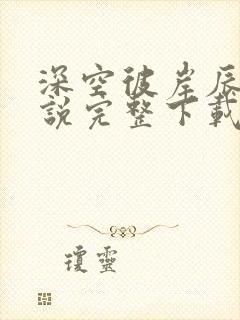 深空彼岸辰
說完整下載
瓊靈